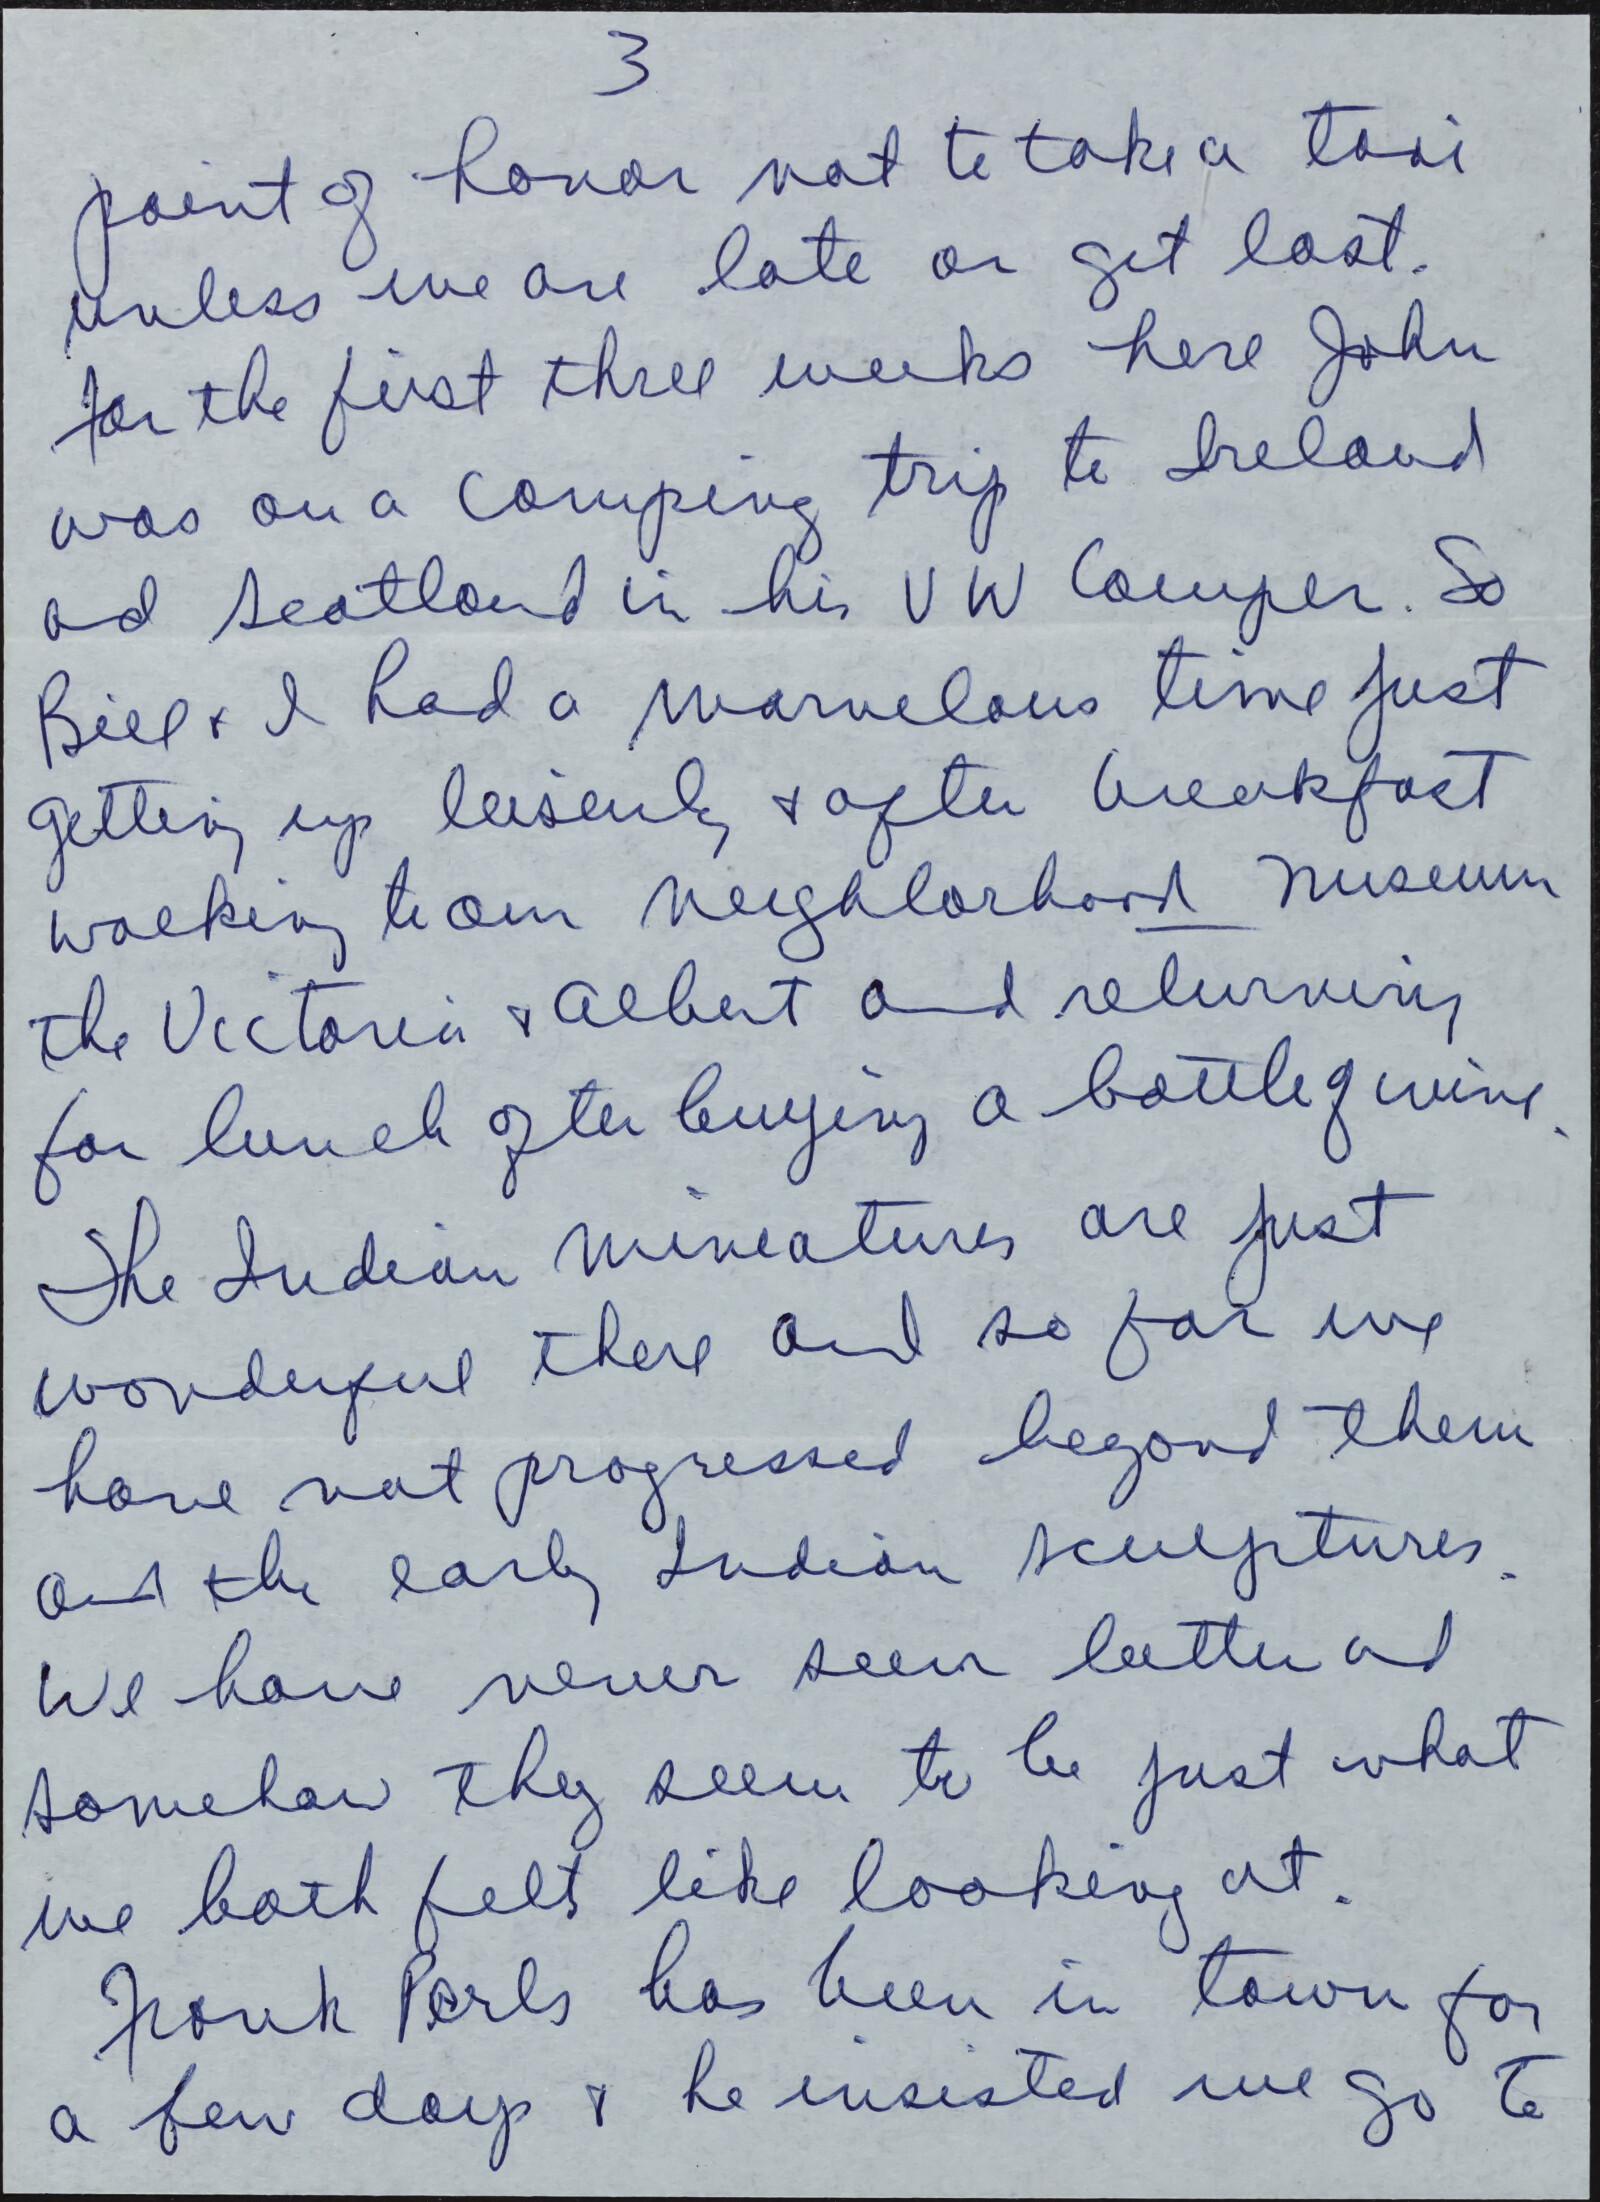 3
point of honor not to take a taxi
unless we are late or get lost.
For the first three weeks here John
was on a camping trip to Ireland
and Scotland in his VW Camper. So
Bill & I had a marvelous time just
getting up leisurely & after breakfast
walking to our neighborhood Museum
the Victoria & Albert and returning
for lunch after buying a bottle of wine.
The Indian Mineatures are just
wonderful there and so far we
have not progressed beyond them
and the early Indian sculptures.
We have never seen better and
somehow they seem to be just what
we both felt like looking at.
Frank Perls has been in town for
a few days & he insisted we go to